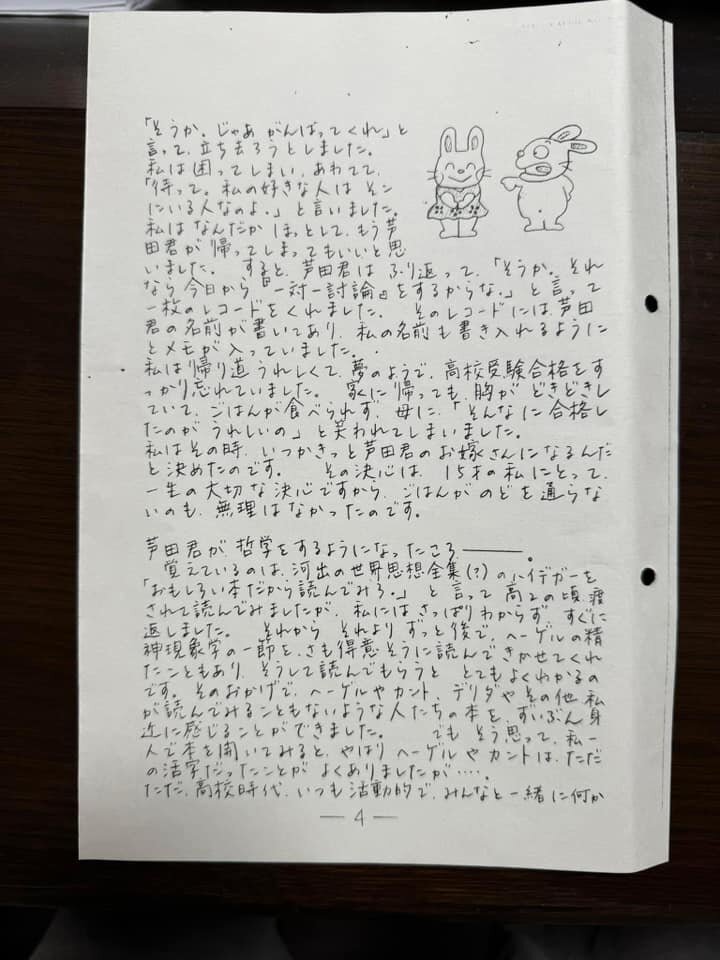 「そうか。じゃあ がんばってくれ」と
言って、立ち去ろうとしました。
私は困ってしまい、あわてて、
「待って。私の好きな人は そこ
にいる人なのよ。」と言いました。
私は なんだか ほっとして、もう芦
田君が帰ってしまってもいいと思
いました。 すると、芦田君は ふり返って、「そうか。それ
なら今日から『一対一討論』をするからな。」と言って
一枚のレコードをくれました。 そのレコードには芦田
君の名前が書いてあり、私の名前も書き入れるように
とメモが入っていました。
私は帰り道うれしくて、夢のようで、高校受験合格をす
っかり忘れていました。 家に帰っても、胸がどきどきし
ていて、ごはんが食べられず、母に、「そんなに合格し
たのがうれしいの」と笑われてしまいました。
私はその時、いつかきっと芦田君のお嫁さんになるんだ
と決めたのです。 その決心は、15才の私にとって、
一生の大切な決心ですから、ごはんがのどを通らな
いのも、無理はなかったのです。
芦田君が哲学をするようになったころ———。
覚えているのは、河出の世界思想全集(?)のハイデガーを
「おもしろい本だから読んでみろ。」と言って高2の頃、渡
されて読んでみましたが、私にはさっぱりわからず、すぐに
返しました。 それから それより ずっと後で、ヘーゲルの精
神現象学の一節を、さも得意そうに読んできかせてくれ
たこともあり、そうして読んでもらうと とてもよくわかるの
です。そのおかげで、ヘーゲルやカント、デリダやその他、私
が読んでみることもないような人たちの本を、ずいぶん身
近に感じることができました。 でも そう思って、私一
人で本を開いてみると、やはり ヘーゲルやカントは、ただ
の活字だったことが よくありましたが・・・・。
ただ、高校時代、いつも活動的で、みんなと一緒に何か
— 4 —